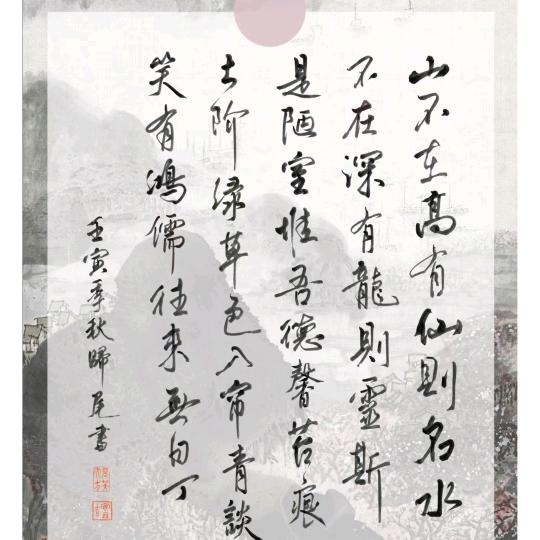 山不在高有仙則名水
不在深有龍則靈斯
是陋室惟吾德馨苔痕
上阶绿草色入帘青談
笑有鴻儒往来無白丁
壬寅季秋歸尾書